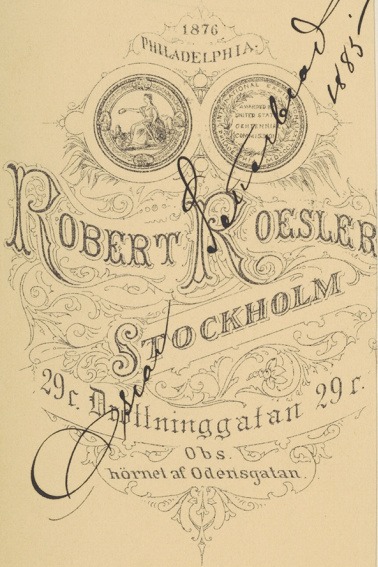 1876
PHILADELPHIA.
INTERNATIONAL
AWARDED BY
UNITED STATES
CENTENNIAL
COMMISSION
ROBERT ROESLER
STOCKHOLM
29 c. Drottninggatan 29 c.
Obs.
hörnet af Odensgatan.
Oscar
1885